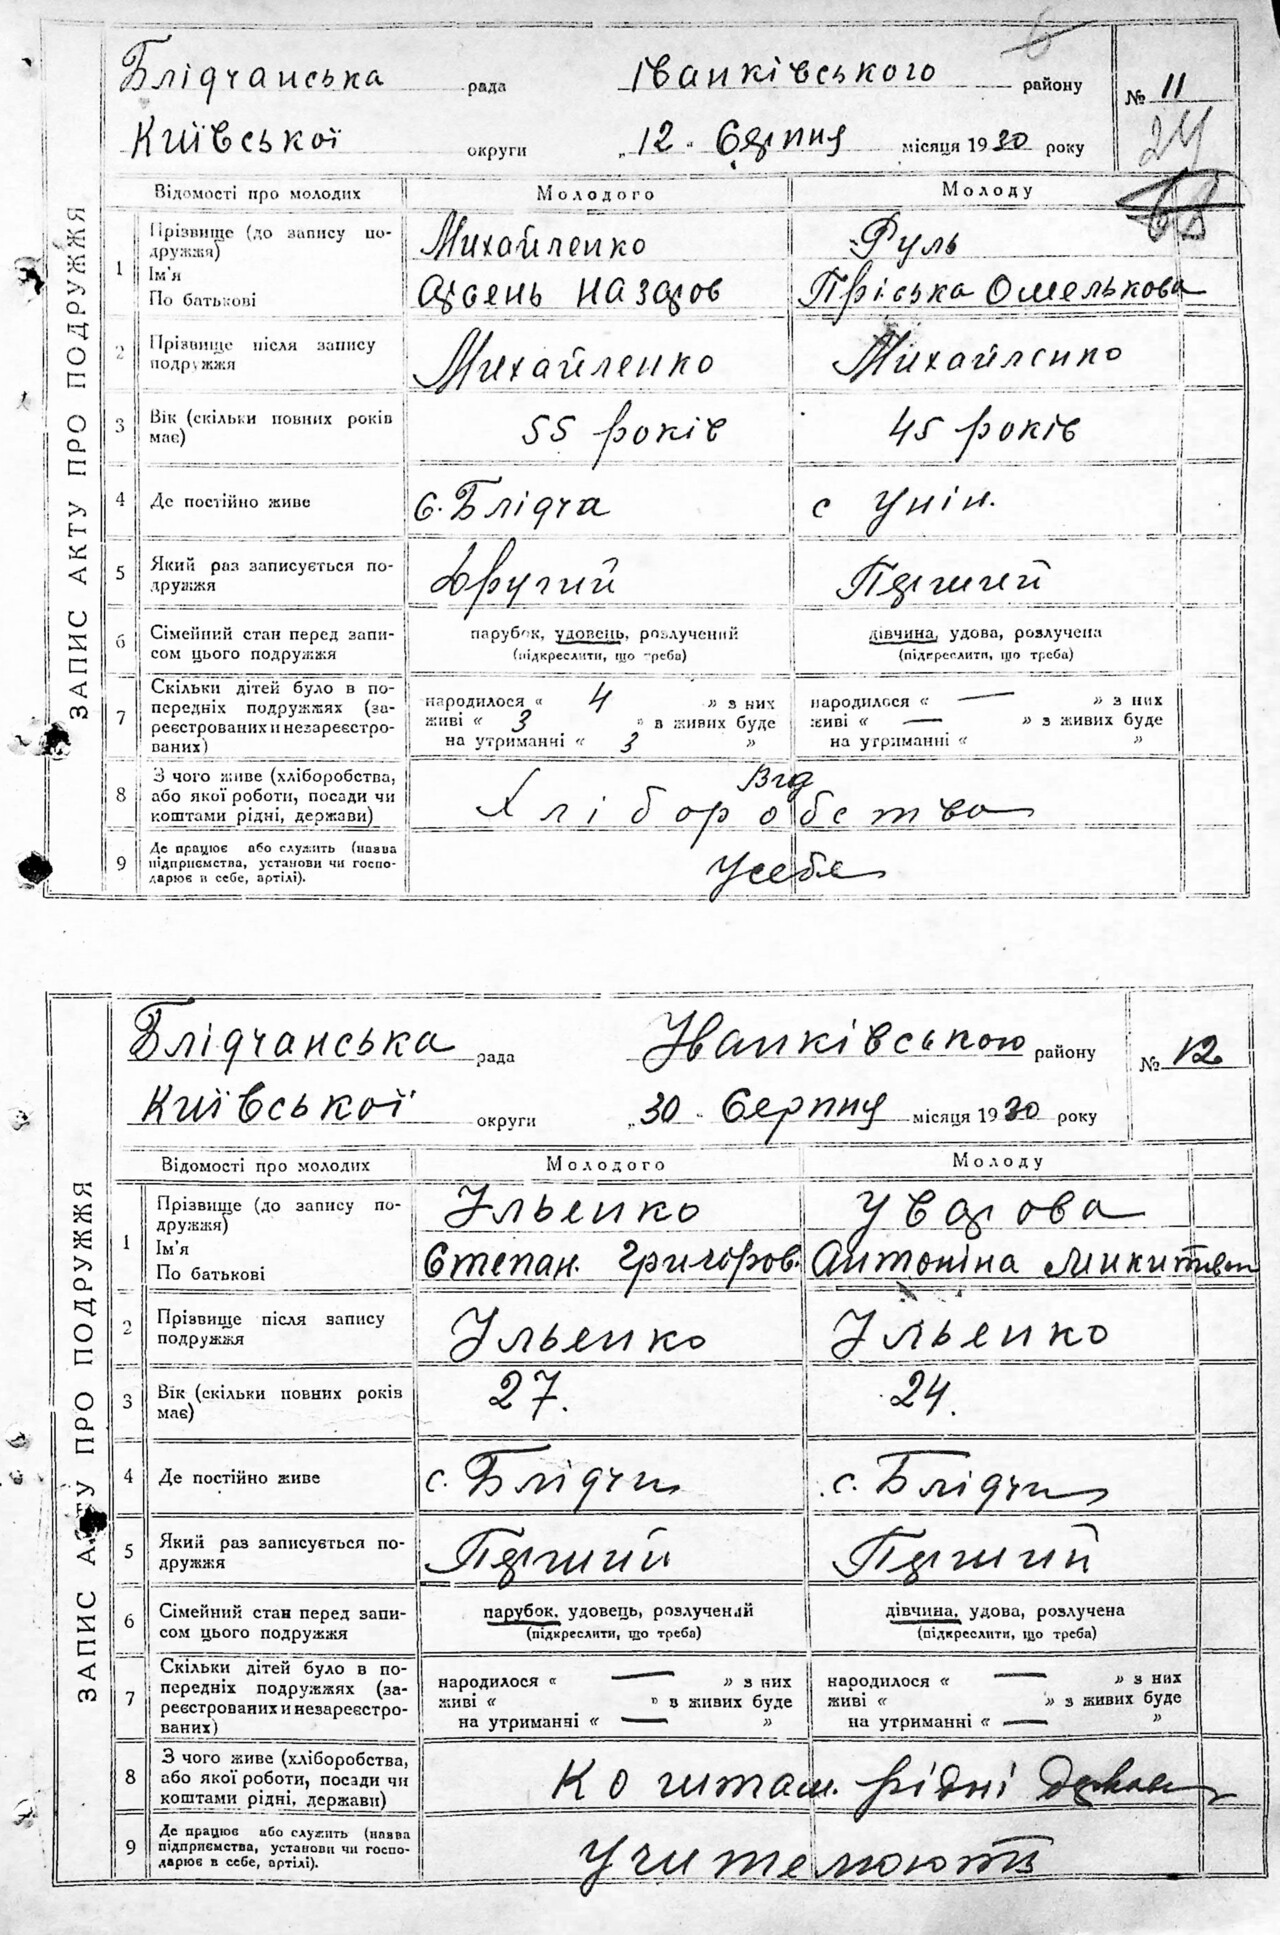 ЗАПИС АКТУ ПРО ПОДРУЖЖЯ
Блідчанська рада Іванківського району № 11
24
Київської округи „12" Серпня місяця 1930 року
Відомості про молодих Молодого Молоду
1 Прізвище (до запису по- Михайленко Руль
дружжя)
Ім'я Арсень Назаров Пріська Омелькова
По батькові
2 Прізвище після запису Михайленко Михайленко
подружжя
3 Вік (скільки повних років 55 років 45 років
має)
4 Де постійно живе с. Блідча с Унін.
5 Який раз записується по- Другий Перший
дружжя
6 Сімейний стан перед запи- парубок, удовець, розлучений дівчина, удова, розлучена
сом цього подружжя (підкреслити, що треба) (підкреслити, що треба)
7 Скільки дітей було в по- народилося « 4 » з них народилося « — » з них
передніх подружжях (за- живі « 3 » в живих буде живі « — » з живих буде
реєстрованих и незареєстро- на утриманні « 3 » на утриманні « »
ваних)
8 З чого живе (хліборобства, Від
або якої роботи, посади чи Хліборобства
коштами рідні, держави)
9 Де працює або служить (назва
підприємства, установи чи госпо- Усебе
дарює в себе, артілі).
ЗАПИС АКТУ ПРО ПОДРУЖЖЯ
Блідчанська рада Уванківського району № 12
Київської округи „30" Серпня місяця 1930 року
Відомості про молодих Молодого Молоду
1 Прізвище (до запису по- Ільенко Уварова
дружжя)
Ім'я Степан. Григоров. Антоніна Микитвн
По батькові
2 Прізвище після запису Ільенко Ільенко
подружжя
3 Вік (скільки повних років 27. 24.
має)
4 Де постійно живе с. Блідчи с. Блідчи
5 Який раз записується по- Перший Перший
дружжя
6 Сімейний стан перед запи- парубок, удовець, розлучений дівчина, удова, розлучена
сом цього подружжя (підкреслити, що треба) (підкреслити, що треба)
7 Скільки дітей було в по- народилося « — » з них народилося « — » з них
передніх подружжях (за- живі « » в живих буде живі « » з живих буде
реєстрованих и незареєстро- на утриманні « — » на утриманні « — »
ваних)
8 З чого живе (хліборобства,
або якої роботи, посади чи Коштам. рідні держави
коштами рідні, держави)
9 Де працює або служить (назва
підприємства, установи чи госпо- Учителюють
дарює в себе, артілі).